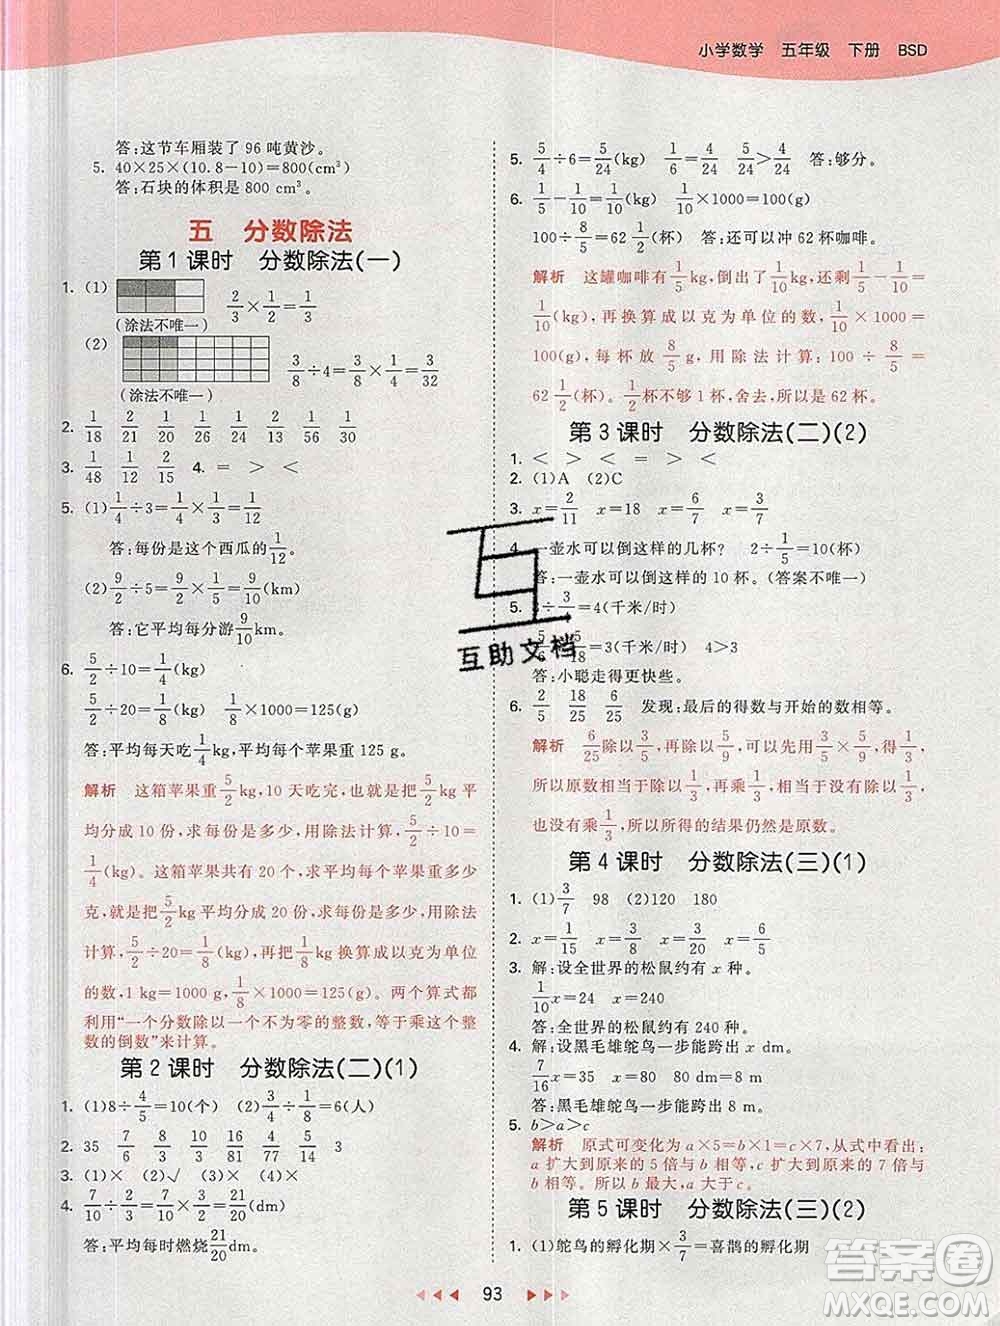 小学数学 五年级 下册 BSD
答:这节车厢装了 96 吨黄沙。
5. 40×25×(10.8−10)=800(cm³)
答:石块的体积是 800 cm³。
五 分数除法
第 1 课时 分数除法(一)
1. (1) 2/3×1/2=1/3
(涂法不唯一)
(2) 3/8÷4=3/8×1/4=3/32
(涂法不唯一)
2. 1/18 2/21 1/20 1/6 1/24 2/15
3. 1/48 2/12 2/15 4. = > < >
5. (1)1/4÷3=1/4×1/3=1/12
答:每份是这个西瓜的1/12。
(2)9/2÷5=9/2×1/5=9/10(km)
答:它平均每分游9/10km。
6. 5/2÷10=1/4(kg)
5/2÷20=1/8(kg) 1/8×1000=125(g)
答:平均每天吃1/4kg,平均每个苹果重 125 g。
解析 这箱苹果重5/2kg,10 天吃完,把5/2kg 平
均分成 10 份,求每份是多少,用除法计算,5/2÷10=
1/4(kg)。这箱苹果有 20 个,求平均每个苹果重多少
克,就是把5/2kg 平均分成 20 份,求每份是多少,用除法
计算,5/2÷20=1/8(kg),再把1/8kg 换算成以克为单位
的数,1 kg=1000 g,1/8×1000=125(g)。两个算式都
利用“一个分数除以一个不为零的整数,等于乘这个整
数的倒数”来计算。
第 2 课时 分数除法(二)(1)
1. (1)8÷4/5=10(个) (2)3/4÷1/8=6(人)
2. 35 7/30 8/63 16/81 4/77 5/14 3
3. (1)× (2)√ (3)× (4)×
4. 7/10÷2/3=21/20(dm)
答:平均每时燃烧21/20dm。
5. 5/4÷6=5/24(kg) 1/6=4/24 5/24>4/24 答:够分。
6. 1/5−1/10=1/10(kg) 1/10×1000=100(g)
100÷8/5=62 1/2(杯) 答:还可以冲 62 杯咖啡。
解析 这罐咖啡有1/5kg,倒出了1/10kg,还剩1/5−1/10=
1/10(kg),再换算成以克为单位的数,1/10×1000=
100(g),每杯放8/5g,用除法计算:100÷8/5=
62 1/2(杯)。1/2杯不够 1 杯,舍去,所以是 62 杯。
第 3 课时 分数除法(二)(2)
1. < > = > < >
2. (1)A (2)C
3. x=2/11 x=18 x=6/7 x=7/6
4. 一壶水可以倒这样的几杯? 2÷1/5=10(杯)
答:一壶水可以倒这样的 10 杯。(答案不唯一)
÷3=4(千米/时)
=3(千米/时) 4>3
答:小聪走得更快些。
6. 2/5 18/25 6/25 发现:最后的得数与开始的数相等。
解析 6/25除以1/3,再除以5/9,最后乘3/5×5/9,得1/3,
所以原数相当于除以1/3,再乘1/3,相当于既没除以1/3,
也没有乘1/3,所以所得的结果仍然是原数。
第 4 课时 分数除法(三)(1)
1. (1)3/7 98 (2)120 180
2. x=1/15 x=3/8 x=2/5 x=6/5
3. 解:设全世界的松鼠约有 x 种。
1/10x=24 x=240
答:全世界的松鼠约有 240 种。
4. 解:设黑毛雄鸵鸟一步能跨出 x dm。
7/16x=35 x=80
答:黑毛雄鸵鸟一步能跨出 80 dm。
5. b>a>c
解析 原式可变化为 a×5=b×1=c×7,从式中看出:
a 扩大到原来的 5 倍与 b 相等,c 扩大到原来的 7 倍与 b
相等。所以 b 最大,a 大于 c。
第 5 课时 分数除法(三)(2)
1. (1)鸵鸟的孵化期×3/7=喜鹊的孵化期
93
互助文档
答案圈
MXQE.COM